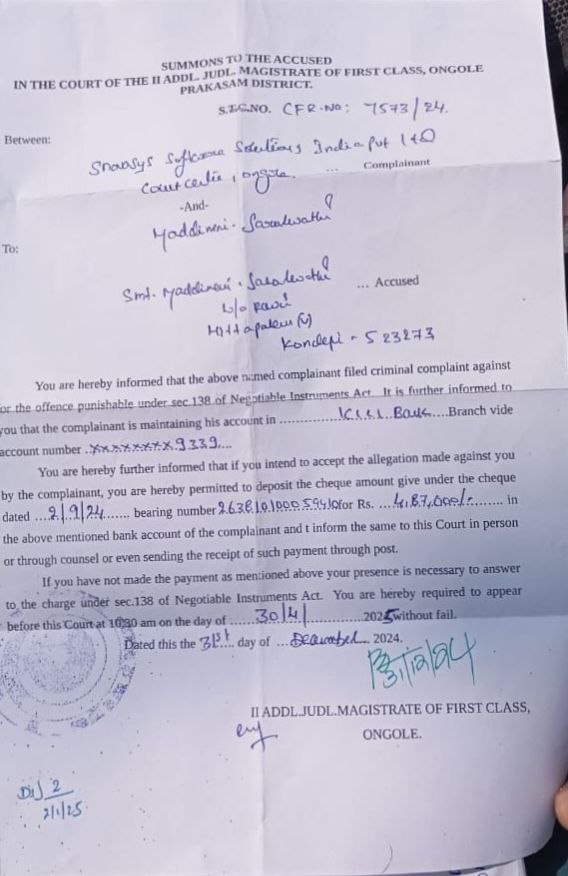 SUMMONS TO THE ACCUSED
IN THE COURT OF THE II ADDL. JUDL. MAGISTRATE OF FIRST CLASS, ONGOLE
PRAKASAM DISTRICT.
S.T.C.NO. CFR-NO: 7573/24.
Between:
Software Solutions India Pvt Ltd
Court Centre, ongole.
... Complainant
-And-
Maddineni. Saraswathi
To:
Smt. Maddineni. Saraswathi
... Accused
W/o Ravi
(V)
Kondepi - 523273
You are hereby informed that the above named complainant filed criminal complaint against
for the offence punishable under sec.138 of Negotiable Instruments Act. It is further informed to
you that the complainant is maintaining his account in ................ICICI Bank....Branch vide
account number ..XXXXXXXX9339....
You are hereby further informed that if you intend to accept the allegation made against you
by the complainant, you are hereby permitted to deposit the cheque amount give under the cheque
dated ....2/9/24....... bearing number for Rs. ....4,87,000/-......... in
the above mentioned bank account of the complainant and t inform the same to this Court in person
or through counsel or even sending the receipt of such payment through post.
If you have not made the payment as mentioned above your presence is necessary to answer
to the charge under sec.138 of Negotiable Instruments Act. You are hereby required to appear
before this Court at 10:30 am on the day of .......30/4/..................2025 without fail.
Dated this the 31st.... day of ...December... 2024.
31/12/24
II ADDL.JUDL.MAGISTRATE OF FIRST CLASS,
ONGOLE.
2
2/1/25.